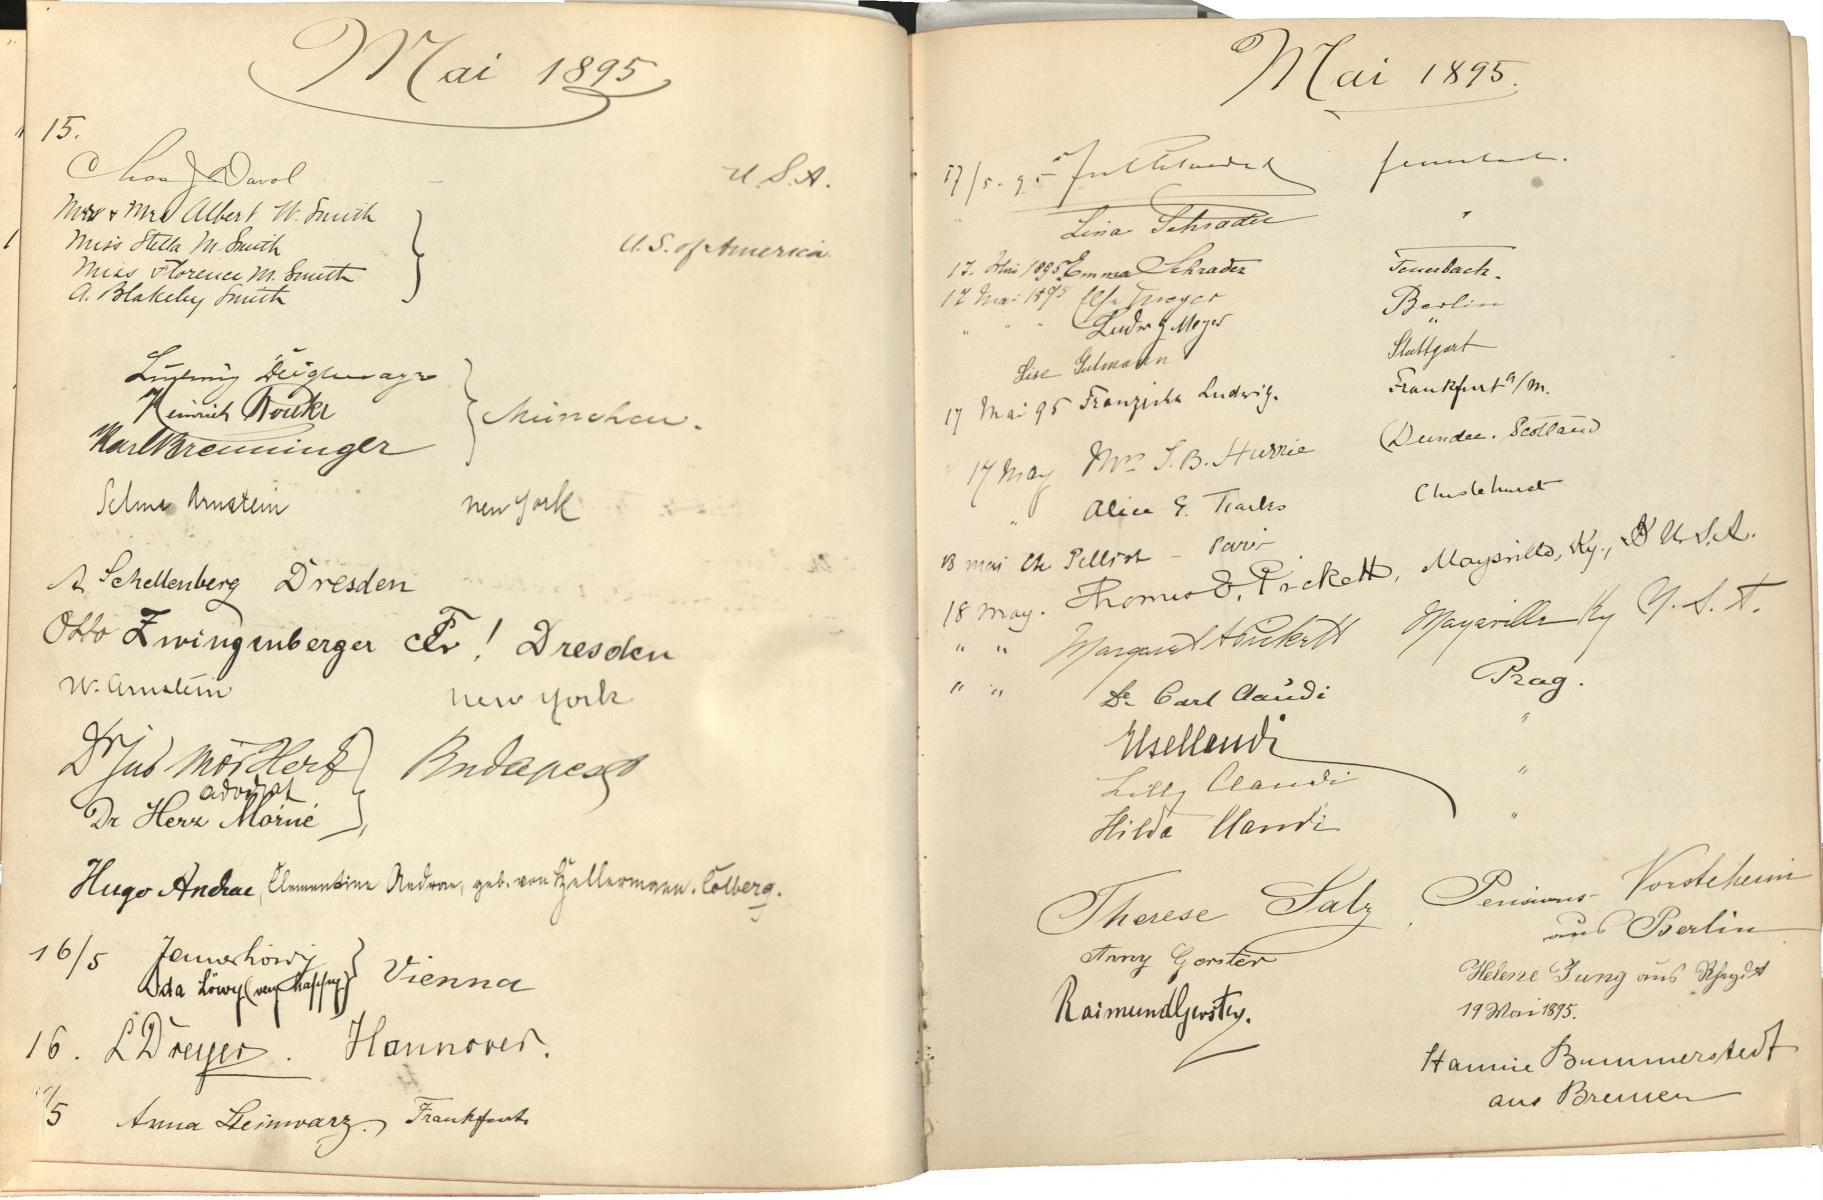 Mai 1895
15.
Chas J Davol U.S.A.
Mr & Mrs Albert W. Smith
Miss Stella M. Smith U.S. of America
Miss Florence M. Smith
A. Blakeley Smith
Ludwig
Heinrich München.
Karl Brenninger
Selma Arnstein New York
A Schellenberg Dresden
Otto Zwingenberger ! Dresden
W. Arnstein New York
Dr jub Mór Herz Budapest
advokat
Dr Herz Mórné
Hugo Andrae, Clementine Andrae, geb. von Colberg.
16/5 Vienna
Ida Löwy
16. L Dreyer. Hannover.
/5 Anna Steinwarz, Frankfurt
Mai 1895.
17/5. 95
Lina Schrader "
17. Mai 1895 Emma Schrader Feuerbach.
17 Mai 1895 Else Meyer Berlin
" " " Ludwig Meyer "
Lise Gutmann Stuttgart
17 Mai 95 Franziska Ludwig. Frankfurt a/M.
17 May Mrs J. B. Hurrie Dundee. Scotland
" Alice E. Chislehurst
18 mai Ch Pelliot - Paris
18 May. Thomas J. Pickett, Maysville, Ky., U.S.A.
" " Margaret Pickett Maysville Ky U.S.A.
" " Dr Carl Claudi Prag.
Else Claudi "
Lilly Claudi "
Hilda Claudi "
Therese Salz Pensions- Vorsteherin
aus Berlin
Anny Gerster
Helene Jung aus Rheydt
Raimund Gerster.
19 Mai 1895.
Hannie Bummerstedt
aus Bremen